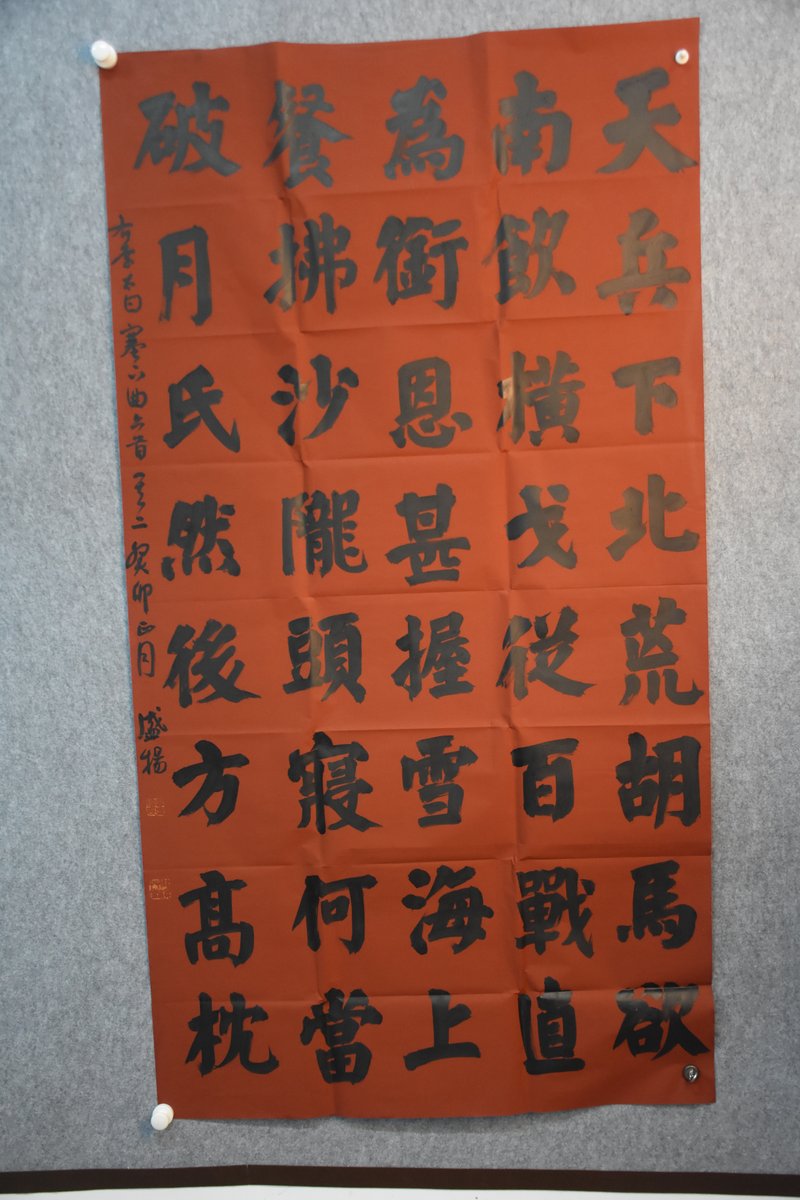 天兵下北荒胡馬欲
南飲橫戈從百戰直
為銜恩甚握雪海上
餐拂沙隴頭寢何當
破月氏然後方高枕
右李太白塞下曲六首之二癸卯正月 盛揚